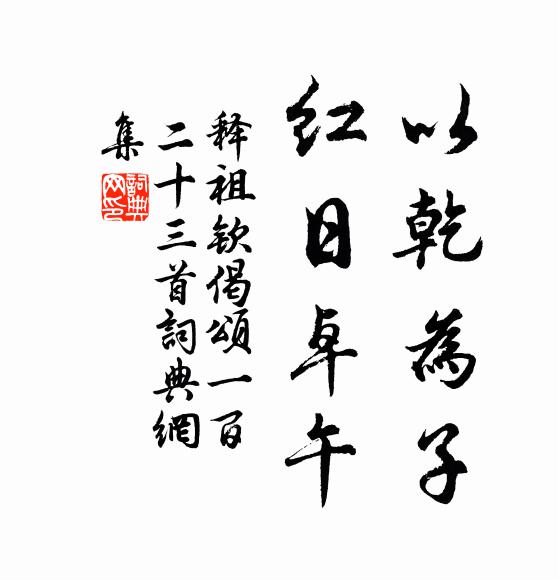 以乾為子
红日卓午
释祖钦偈頌一百
二十三首詞典網
集
詞典网印